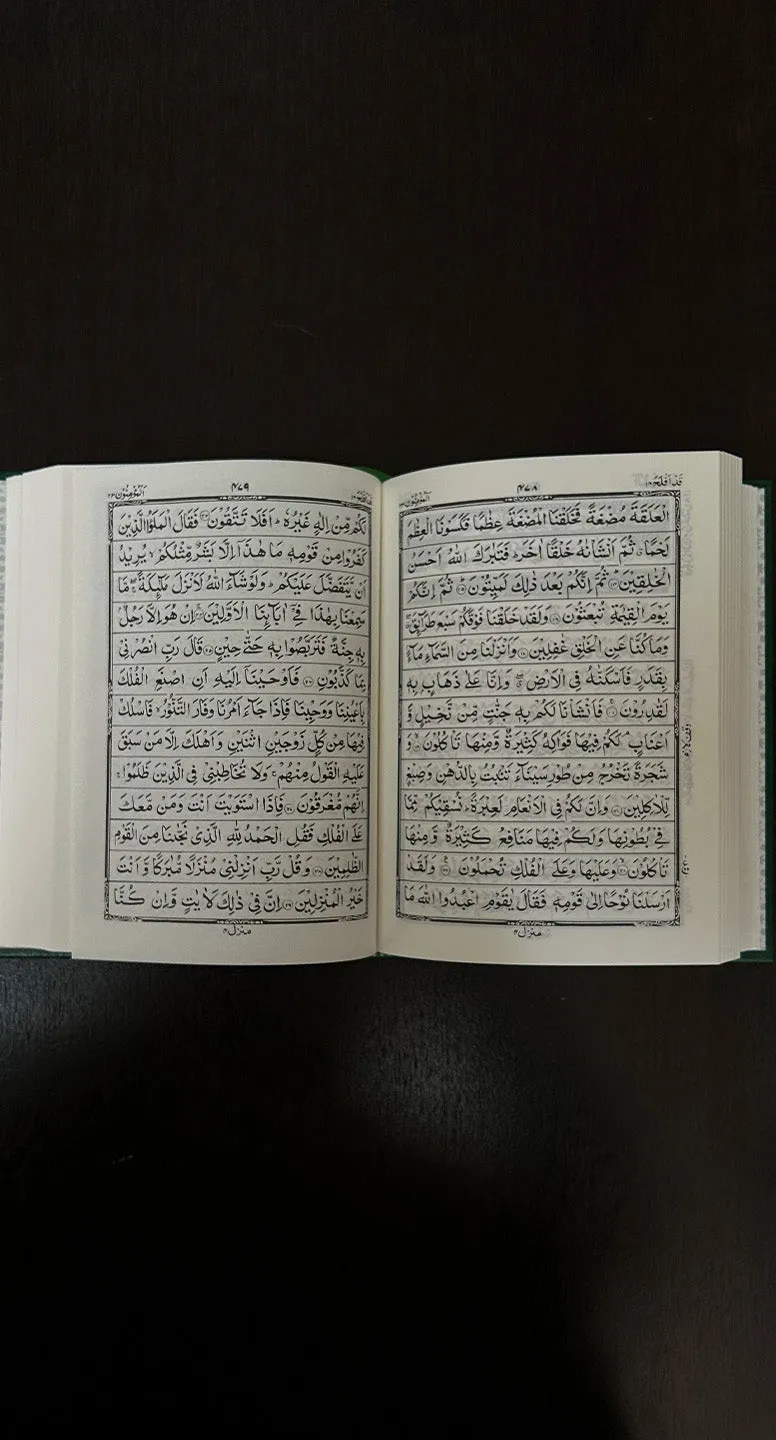 قَدْ اَفْلَحَ ۱۸
۴۷۸
اَلْمُؤْمِنُوْن ۲۳
الْعَلَقَةَ مُضْغَةً فَخَلَقْنَا الْمُضْغَةَ عِظٰمًا فَكَسَوْنَا الْعِظٰمَ
لَحْمًا ثُمَّ اَنْشَاْنٰهُ خَلْقًا اٰخَرَ ؕ فَتَبٰرَكَ اللّٰهُ اَحْسَنُ
الْخٰلِقِيْنَ ۱۴ ثُمَّ اِنَّكُمْ بَعْدَ ذٰلِكَ لَمَيِّتُوْنَ ۱۵ ثُمَّ اِنَّكُمْ
يَوْمَ الْقِيٰمَةِ تُبْعَثُوْنَ ۱۶ وَلَقَدْ خَلَقْنَا فَوْقَكُمْ سَبْعَ طَرَآئِقَ
وَمَا كُنَّا عَنِ الْخَلْقِ غٰفِلِيْنَ ۱۷ وَاَنْزَلْنَا مِنَ السَّمَآءِ مَآءً
بِقَدَرٍ فَاَسْكَنّٰهُ فِى الْاَرْضِ وَاِنَّا عَلٰى ذَهَابٍ بِهٖ
لَقٰدِرُوْنَ ۱۸ فَاَنْشَاْنَا لَكُمْ بِهٖ جَنّٰتٍ مِّنْ نَّخِيْلٍ وَّ
اَعْنَابٍ لَكُمْ فِيْهَا فَوَاكِهُ كَثِيْرَةٌ وَّمِنْهَا تَاْكُلُوْنَ ۱۹ وَ
شَجَرَةً تَخْرُجُ مِنْ طُوْرِ سَيْنَآءَ تَنْۢبُتُ بِالدُّهْنِ وَصِبْغٍ
لِّلْاٰكِلِيْنَ ۲۰ وَاِنَّ لَكُمْ فِى الْاَنْعَامِ لَعِبْرَةً ؕ نُسْقِيْكُمْ مِّمَّا
فِىْ بُطُوْنِهَا وَلَكُمْ فِيْهَا مَنَافِعُ كَثِيْرَةٌ وَّمِنْهَا
تَاْكُلُوْنَ ۲۱ وَعَلَيْهَا وَعَلَى الْفُلْكِ تُحْمَلُوْنَ ۲۲ وَلَقَدْ
اَرْسَلْنَا نُوْحًا اِلٰى قَوْمِهٖ فَقَالَ يٰقَوْمِ اعْبُدُوا اللّٰهَ مَا
منزل ۴
قَدْ اَفْلَحَ ۱۸
۴۷۹
اَلْمُؤْمِنُوْن ۲۳
لَكُمْ مِّنْ اِلٰهٍ غَيْرُهٗ ؕ اَفَلَا تَتَّقُوْنَ ۲۳ فَقَالَ الْمَلَؤُا الَّذِيْنَ
كَفَرُوْا مِنْ قَوْمِهٖ مَا هٰذَا اِلَّا بَشَرٌ مِّثْلُكُمْ ۙ يُرِيْدُ
اَنْ يَّتَفَضَّلَ عَلَيْكُمْ ؕ وَلَوْ شَآءَ اللّٰهُ لَاَنْزَلَ مَلٰٓئِكَةً مَّا
سَمِعْنَا بِهٰذَا فِىْٓ اٰبَآئِنَا الْاَوَّلِيْنَ ۲۴ اِنْ هُوَ اِلَّا رَجُلٌۢ
بِهٖ جِنَّةٌ فَتَرَبَّصُوْا بِهٖ حَتّٰى حِيْنٍ ۲۵ قَالَ رَبِّ انْصُرْنِىْ
بِمَا كَذَّبُوْنِ ۲۶ فَاَوْحَيْنَآ اِلَيْهِ اَنِ اصْنَعِ الْفُلْكَ
بِاَعْيُنِنَا وَوَحْيِنَا فَاِذَا جَآءَ اَمْرُنَا وَفَارَ التَّنُّوْرُ ۙ فَاسْلُكْ
فِيْهَا مِنْ كُلٍّ زَوْجَيْنِ اثْنَيْنِ وَاَهْلَكَ اِلَّا مَنْ سَبَقَ
عَلَيْهِ الْقَوْلُ مِنْهُمْ ۚ وَلَا تُخَاطِبْنِىْ فِى الَّذِيْنَ ظَلَمُوْا ۚ
اِنَّهُمْ مُّغْرَقُوْنَ ۲۷ فَاِذَا اسْتَوَيْتَ اَنْتَ وَمَنْ مَّعَكَ
عَلَى الْفُلْكِ فَقُلِ الْحَمْدُ لِلّٰهِ الَّذِىْ نَجّٰىنَا مِنَ الْقَوْمِ
الظّٰلِمِيْنَ ۲۸ وَقُلْ رَّبِّ اَنْزِلْنِىْ مُنْزَلًا مُّبٰرَكًا وَّاَنْتَ
خَيْرُ الْمُنْزِلِيْنَ ۲۹ اِنَّ فِىْ ذٰلِكَ لَاٰيٰتٍ وَّاِنْ كُنَّا
منزل ۴